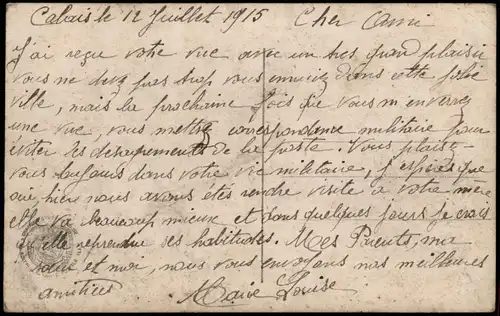 Calais le 12 Juillet 1915 Cher Ami
J'ai reçu votre vue avec un tres grand plaisir
vous ne devez pas trop vous ennuiez dans cette jolie
ville, mais la prochaine fois que vous m'enverrez
une vue, vous mettrez correspondance militaire pour
eviter les desagrements de la poste. Vous plaisez-
vous toujours dans votre vie militaire, j'espères que
oui, hier nous avons étés rendre visite a votre mère
elle va beaucoup mieux et dans quelques jours je crois
qu'elle reprendra ses habitudes. Mes Parents, ma
sœur et moi, nous vous envoyons nos meilleures
amitiées Marie Louise